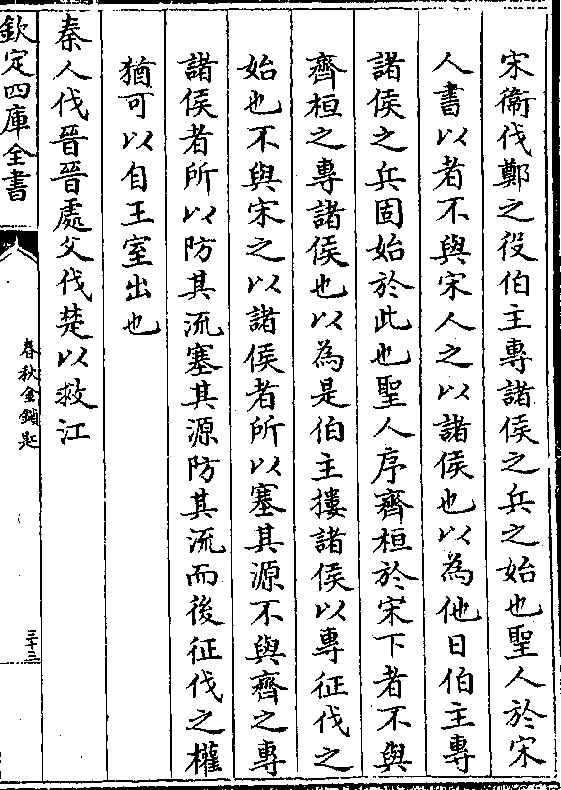 宋衞伐鄭之役伯主專諸侯之兵之始也聖人於宋
人書以者不與宋人之以諸侯也以為他日伯主專
諸侯之兵固始於此也聖人序齊桓於宋下者不與
齊桓之專諸侯也以為是伯主摟諸侯以專征伐之
始也不與宋之以諸侯者所以塞其源不與齊之專
諸侯者所以防其流塞其源防其流而後征伐之權
猶可以自王室出也
秦人伐晉晉處父伐楚以救江
欽定四庫全書
春秋金鎖匙
三十三